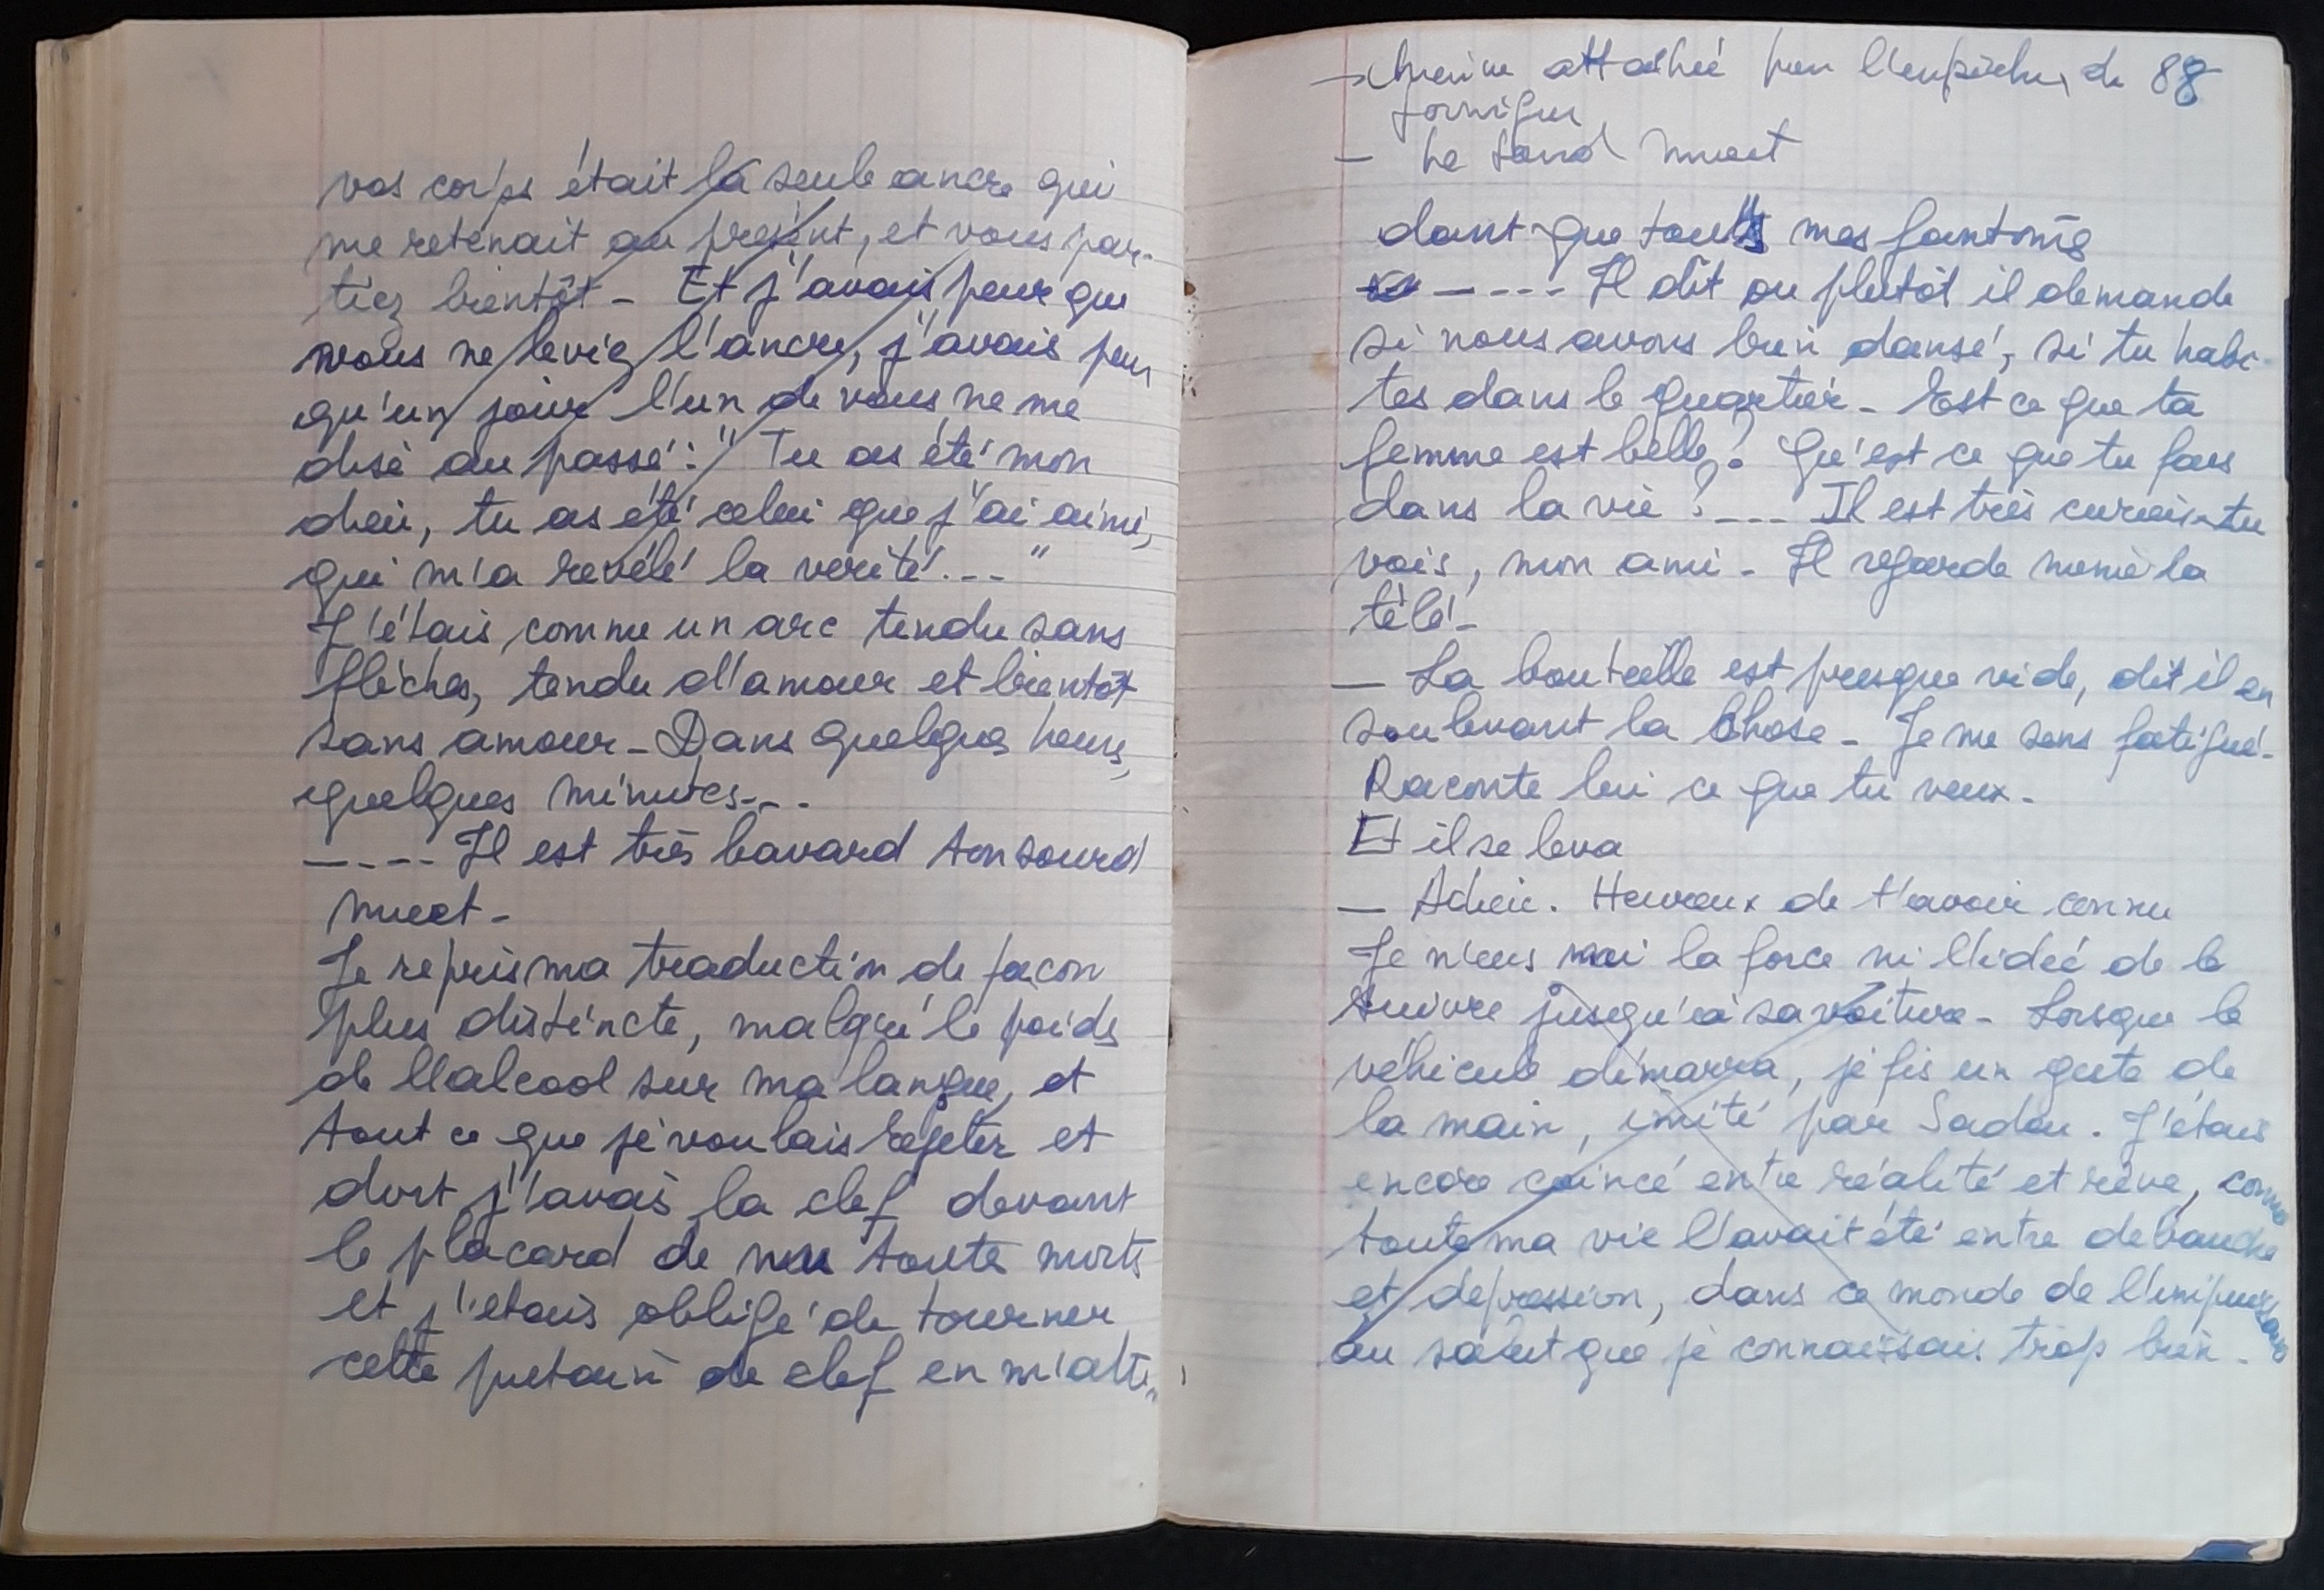 vos corps était la seule ancre qui
me retenait au présent, et vous par-
tiez bientôt - Et j'avais peur que
vous ne leviez l'ancre, j'avais peur
qu'un jour l'un de vous ne me
dise au passé : " Tu as été mon
dieu, tu as été celui que j'ai aimé,
qui m'a revélé la verité... "
J'étais comme un arc tendu sans
flèches, tendu d'amour et bientôt
sans amour - Dans quelques heures,
quelques minutes...
---- Il est très bavard ton sourd
muet -
Je repris ma traduction de facon
plus distincte, malgré le poids
de l'alcool sur ma langue, et
tout ce que je voulais rejeter et
dont j'avais la clef devant
le placard de toute morts
et j'étais obligé de tourner
cette putain de clef en m'atten
→ attachée pour l'empêcher de 88
forniquer
- Le sourd muet
dant que tous mes fantômes
---- Il dit ou plutôt il demande
si nous avons bien dansé, si tu habi-
tes dans le quartier - Est ce que ta
femme est belle ? Qu'est ce que tu fais
dans la vie ? --- Il est très curieux tu
vois, mon ami - Il regarde même la
télé -
- La bouteille est presque vide, dit il en
soulevant la chose - Je me sens fatigué -
Raconte lui ce que tu veux -
Et il se leva
- Adieu. Heureux de t'avoir connu
Je n'eus ni la force ni l'idée de le
suivre jusqu'à sa voiture - Lorsque le
véhicule démarra, je fis un geste de
la main, imité par Sadou. J'étais
encore coincé entre réalité et rêve, comme
toute ma vie l'avait été entre debauche
et depression, dans ce monde de l'impuissance
au salut que je connaissais trop bien -